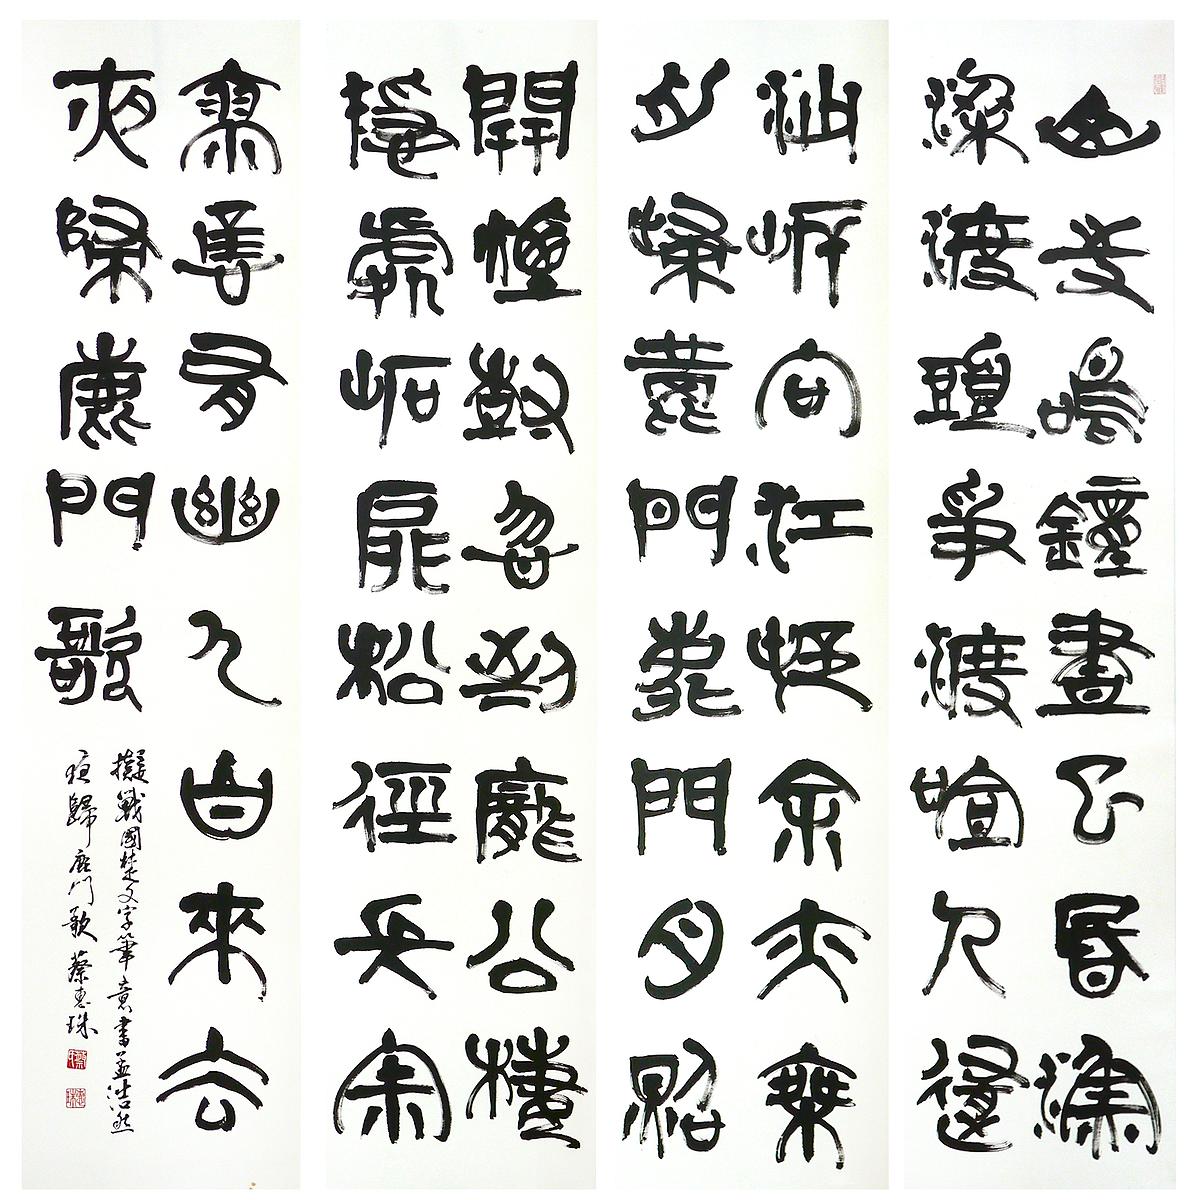 山寺鳴鐘晝已昏漁
梁渡頭爭渡喧人隨
沙岸向江村余亦乘
舟歸鹿門鹿門月照
開煙樹忽到龐公棲
隱處岩扉松徑長寂
寥唯有幽人自來去
夜歸鹿門歌
擬戰國楚文字筆意書孟浩然
夜歸鹿門歌 蔡惠珠